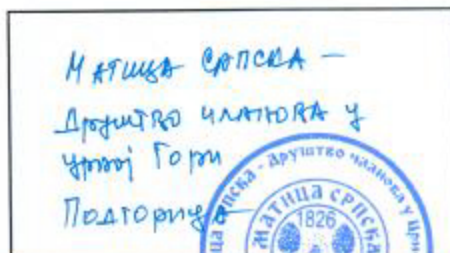 Матица Српска –
Друштво чланова у
Црној Гори
Подгорица
ца српска - друштво чланова у црн
МАТИЦА СРПСКА
1826